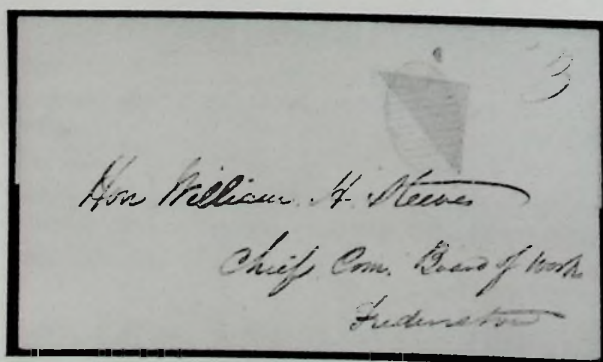 3
Hon William H. Steeves
Chief Com. Board of Work
Fredericton